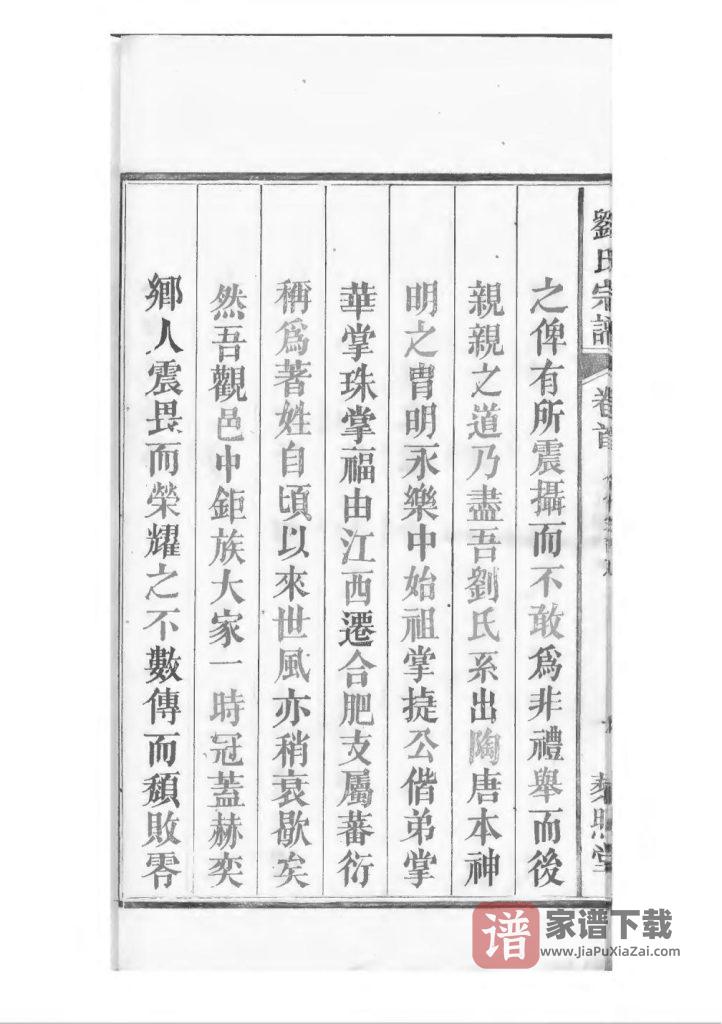 劉氏宗譜
卷首
之俾有所震攝而不敢爲非禮舉而後
親親之道乃盡吾劉氏系出陶唐本神
明之胄明永樂中始祖掌㨗公偕弟掌
華掌珠掌福由江西遷合肥支屬蕃衍
稱爲著姓自頃以來世風亦稍衰歇矣
然吾觀邑中鉅族大家一時冠蓋赫奕
鄉人震畏而榮耀之不數傳而頹敗零
谱
家谱下载
www.JiaPuXiaZai.com